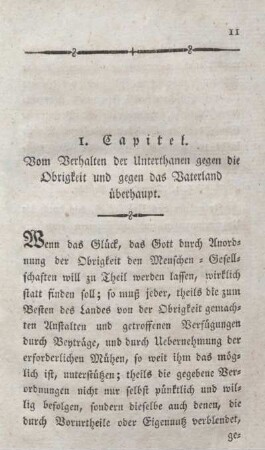 11
1. Capitel.
Vom Verhalten der Unterthanen gegen die
Obrigkeit und gegen das Vaterland
überhaupt.
Wenn das Glück, das Gott durch Anord-
nung der Obrigkeit den Menschen-Gesell-
schaften will zu Theil werden lassen, wirklich
statt finden soll; so muß jeder, theils die zum
Besten des Landes von der Obrigkeit gemach-
ten Anstalten und getroffenen Verfügungen
durch Beyträge, und durch Uebernehmung der
erforderlichen Mühen, so weit ihm das mög-
lich ist, unterstützen; theils die gegebene Ver-
ordnungen nicht nur selbst pünktlich und wil-
lig befolgen, sondern dieselbe auch denen, die
durch Vorurtheile oder Eigennutz verblendet,
ge-